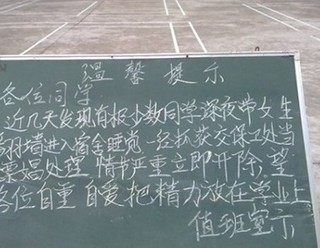 温馨提示
各位同学
近几天发现有极少数同学深夜带女生
翻墙进入宿舍睡觉一经抓获交保卫处当
嫖娼处理 情节严重立即开除,望
各位自重 自爱 把精力放在学业上
值班室示